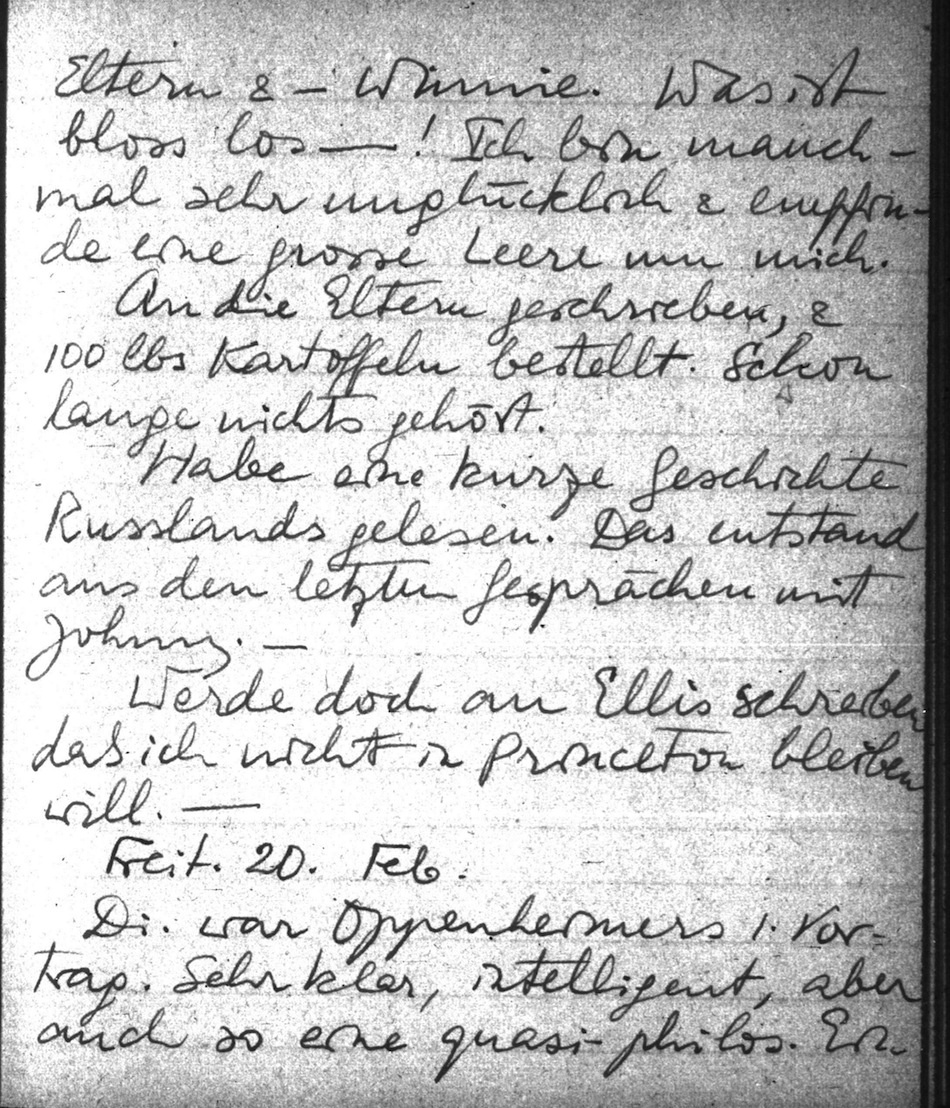 Eltern & – Winnie. Was ist
bloss los — ! Ich bin manch-
mal sehr unglücklich & empfin-
de eine grosse Leere um mich.
An die Eltern geschrieben, &
100 lbs Kartoffeln bestellt. Schon
lange nichts gehört.
Habe eine kurze Geschichte
Russlands gelesen. Das entstand
aus den letzten Gesprächen mit
Johnny. —
Werde doch an Ellis schreiben
das ich nicht in Princeton bleiben
will. —
Freit. 20. Feb.
Di. war Oppenheimers 1. Vor-
trag. Sehr klar, intelligent, aber
auch so eine quasi-philos. Ein-